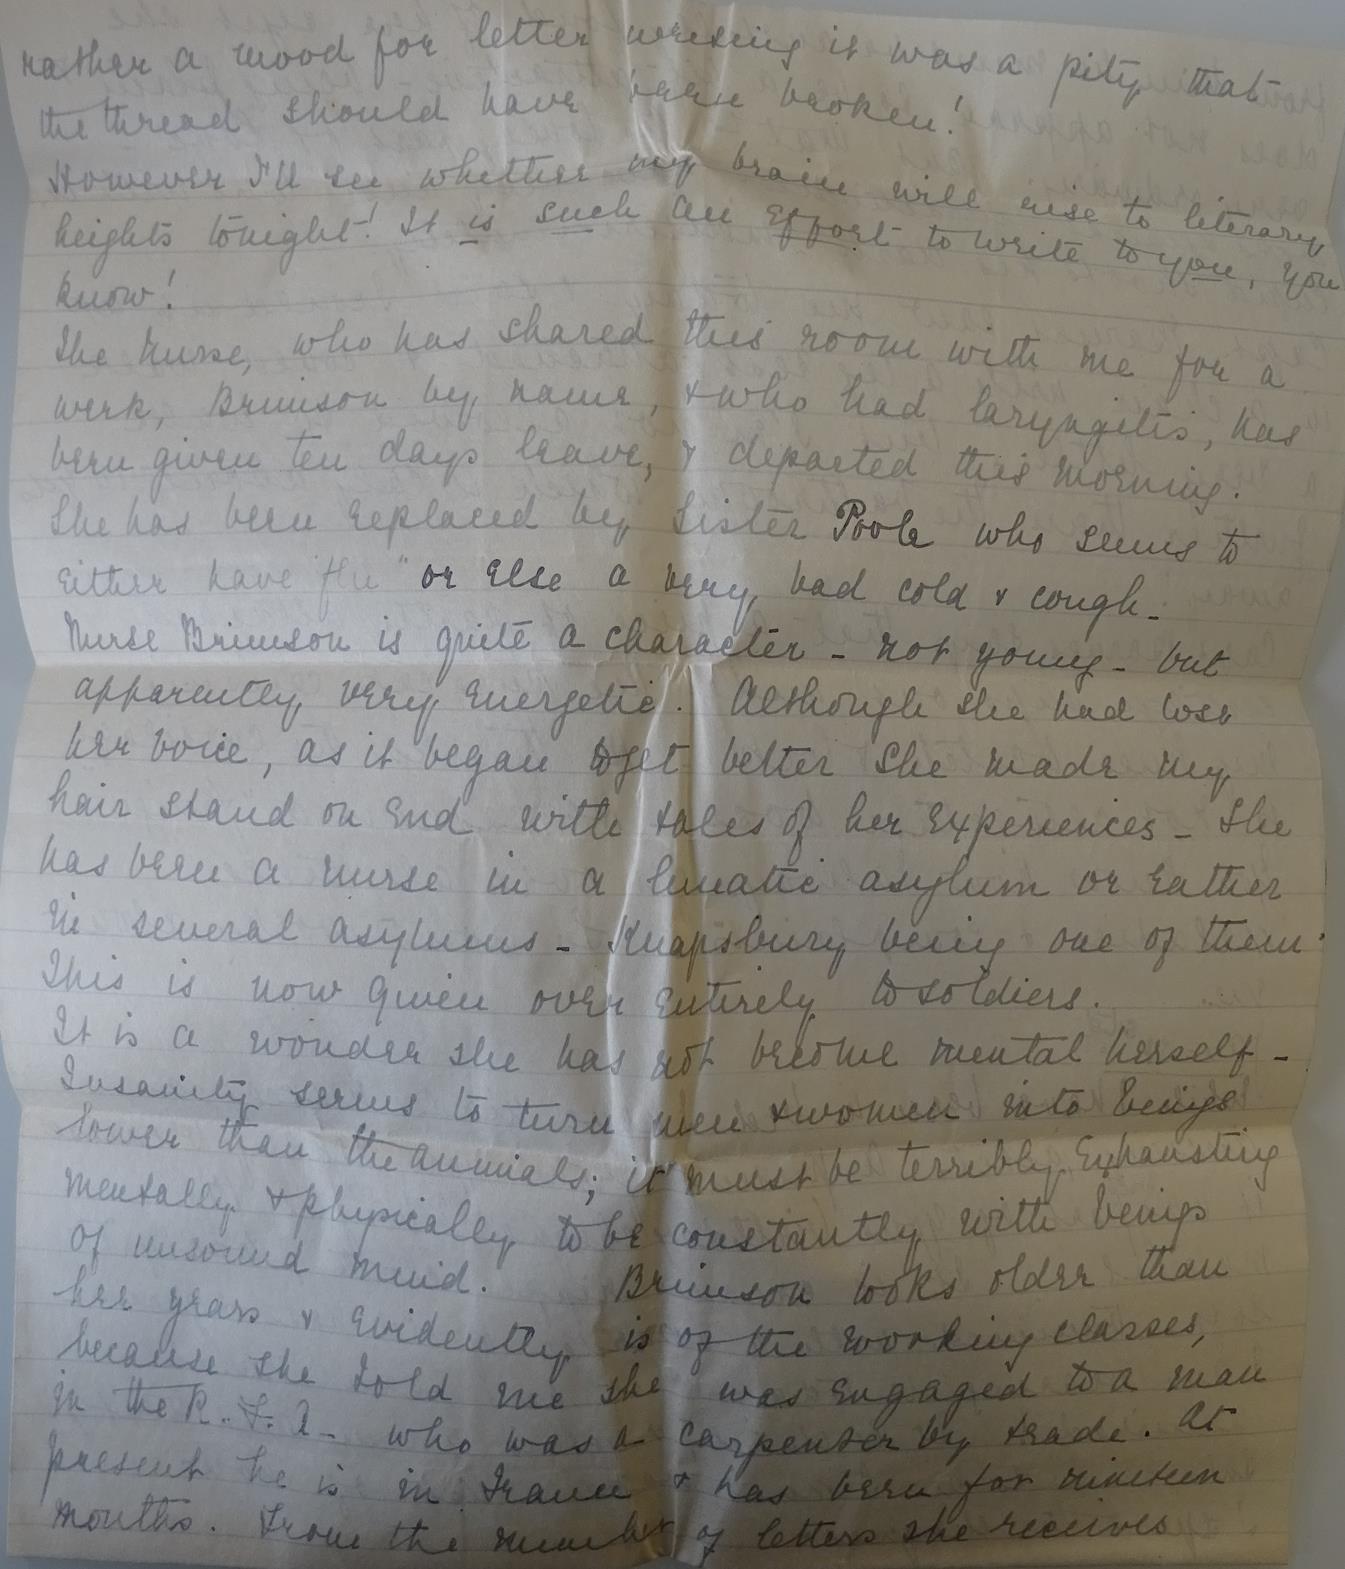 rather a mood for letter writing it was a pity that
the thread should have been broken!
However I'll see whether my brain will rise to literary
heights tonight! It is such an effort to write to you, you
know!
The Nurse, who has shared this room with me for a
week, Brimson by name, & who had laryngitis, has
been given ten days leave, & departed this morning.
She has been replaced by Sister Poole who seems to
either have "flu" or else a very bad cold & cough -
Nurse Brimson is quite a character - not young - but
apparently very energetic. Although she had lost
her voice, as it began to get better she made my
hair stand on end with tales of her experiences - She
has been a nurse in a lunatic asylum or rather
in several asylums - Knapsbury being one of them.
This is now given over entirely to soldiers.
It is a wonder she has not become mental herself -
Insanity seems to turn men & women into beings
lower than the animals; it must be terribly exhausting
mentally & physically to be constantly with beings
of unsound mind. Brimson looks older than
her years & evidently is of the working classes,
because she told me she was engaged to a man
in the R.F.A - who was a carpenter by trade. At
present he is in France & has been for nineteen
months. From the number of letters she receives